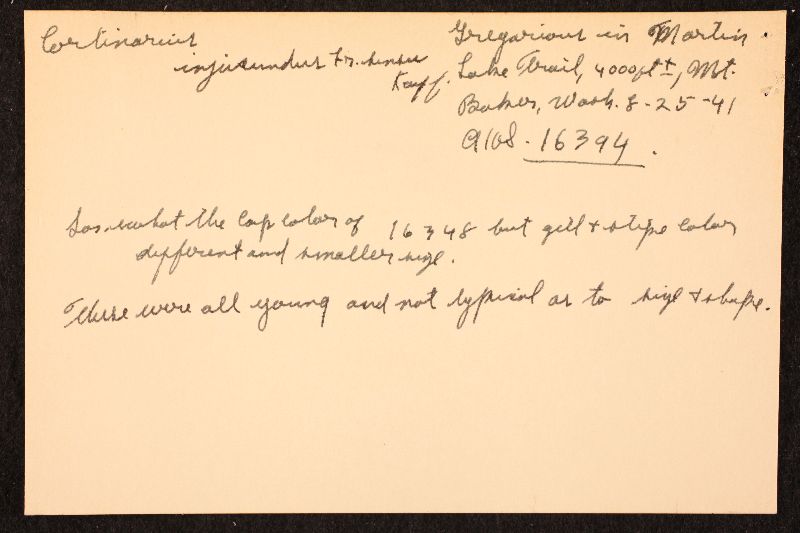 Cortinarius
injucundus Fr. sensu
Kauf.
Gregarious in Martin
Lake Trail, 4000ft ±, Mt.
Baker, Wash. 8-25-41
16394.
Somewhat the cap color of 16348 but gill + stipe color
different and smaller size.
These were all young and not typical as to size + shape.